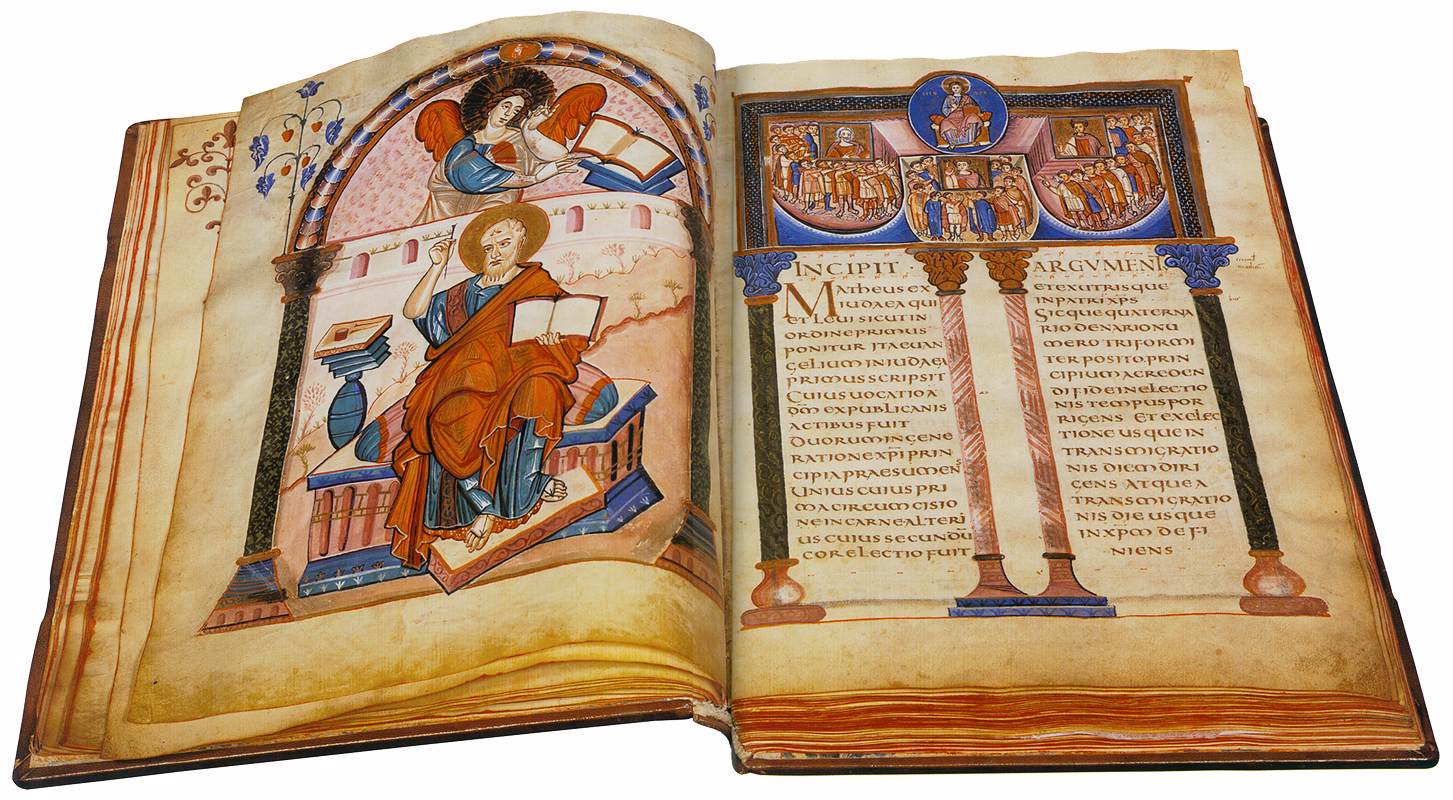 INCIPIT ·
MATHEUS EX
IUDAEA QUI
ET LEUI SICUT IN
ORDINE PRIMUS
PONITUR ITA EUAN
GELIUM IN IUDAEA
PRIMUS SCRIPSIT
CUIUS UOCATIO A
DM̄ EX PUBLICANIS
ACTIBUS FUIT
DUORUM IN GENE
RATIONE XP̄I PRIN
CIPIA PRAESUMENS
UNIUS CUIUS PRI
MA CIRCUMCISIO
NE IN CARNE ALTERI
US CUIUS SECUNDŪ
COR ELECTIO FUIT
ARGVMENT
ET EX UTRISQUE
IN PATRI XP̄S
SICQUE QUATERNA
RIO DENARIO NU
MERO TRIFORMI
TER POSITO. PRIN
CIPIUM A CREDEN
DI FIDE IN ELECTIO
NIS TEMPUS POR
RIGENS ET EX ELEC
TIONE USQUE IN
TRANSMIGRATIO
NIS DIEM DIRI
GENS ATQUE A
TRANSMIGRATIO
NIS DIE USQUE
IN XP̄M DEFI
NIENS